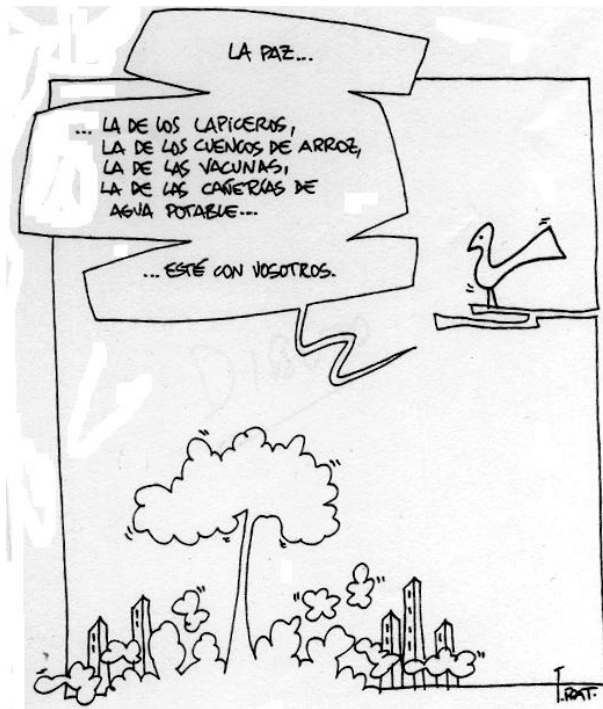 LA PAZ...
... LA DE LOS LAPICEROS,
LA DE LOS CUENCOS DE ARROZ,
LA DE LAS VACUNAS,
LA DE LAS CAÑERÍAS DE
AGUA POTABLE...
... ESTÉ CON VOSOTROS.